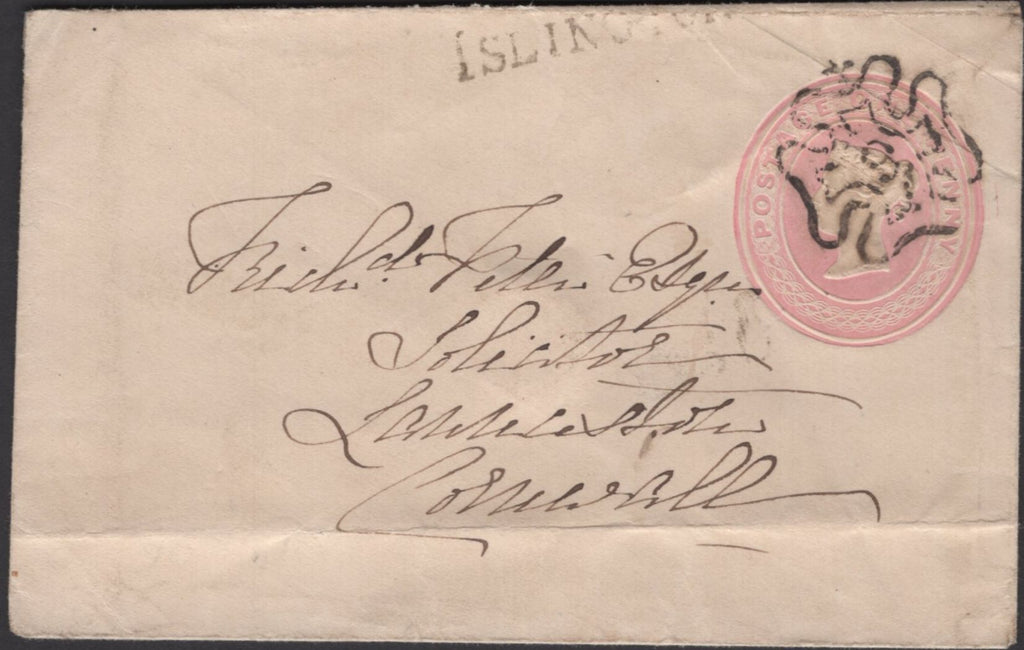 ISLINGTON
POSTAGE ONE PENNY
Richd. Peter Esqre
Solicitor
Launceston
Cornwall